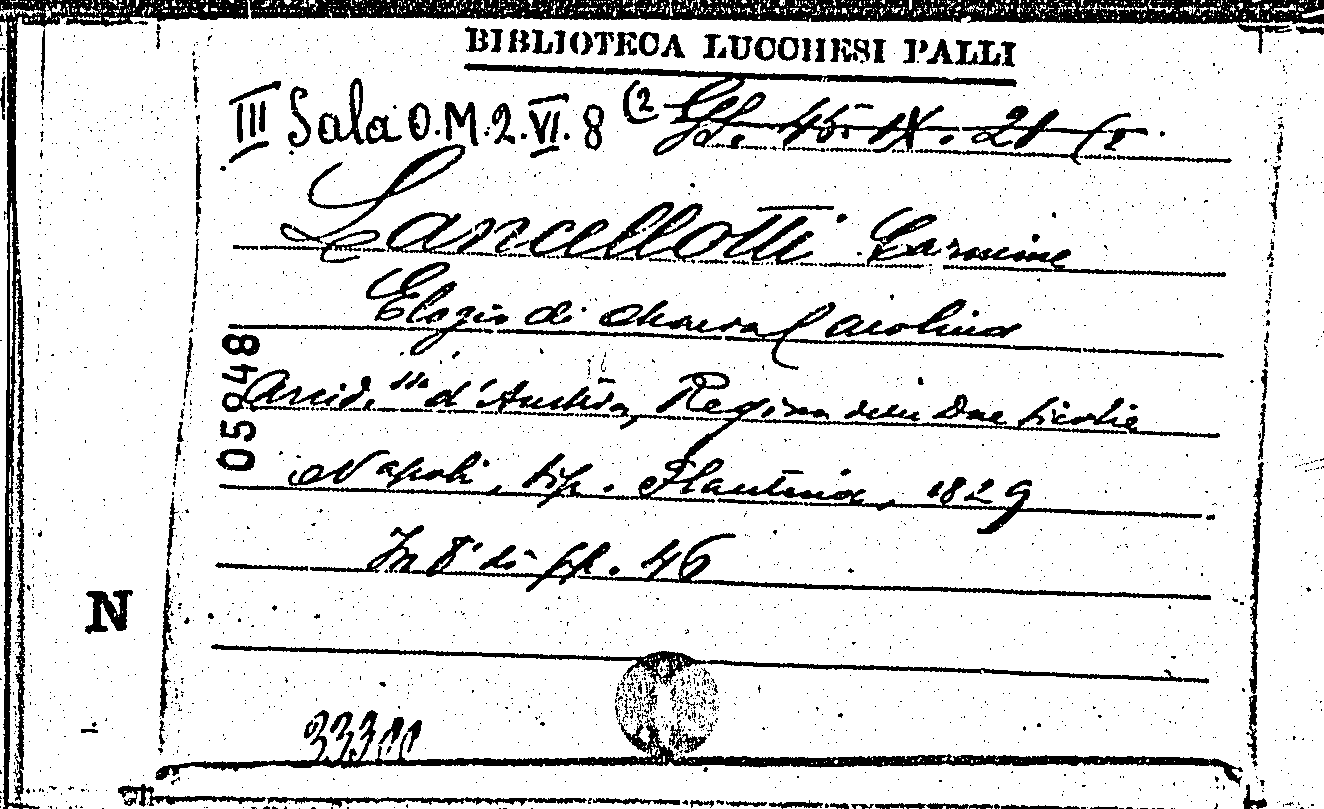 BIBLIOTECA LUCCHESI PALLI
III Sala O.M.2.VI.8 (2 45. IX. 21 (2
Lancellotti
Elogio di Maria Carolina
Arcid.ssa d'Austria, Regina delle Due Sicilie
Napoli, tip. Plautina, 1829
In 8° di pp. 46
05048
N
33300